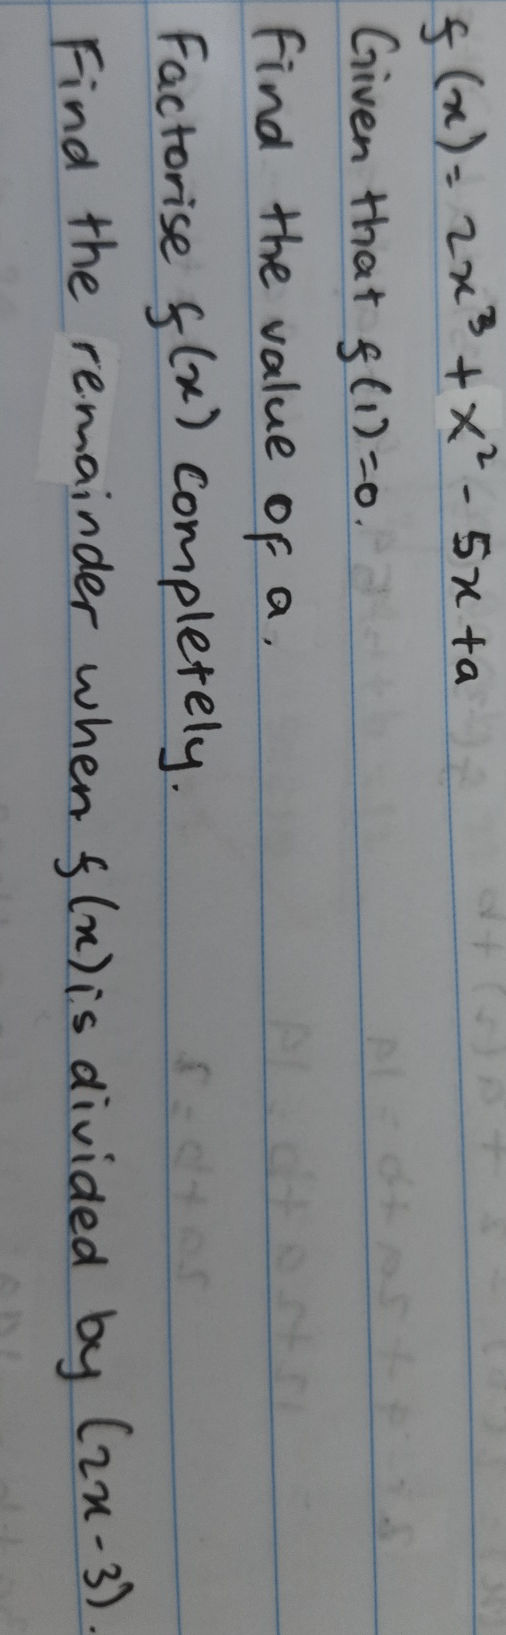 f(x) = 2x³ + x² - 5x + a
Given that f(1)=0.
Find the value of a.
Factorise f(x) completely.
Find the remainder when f(x) is divided by (2x-3).